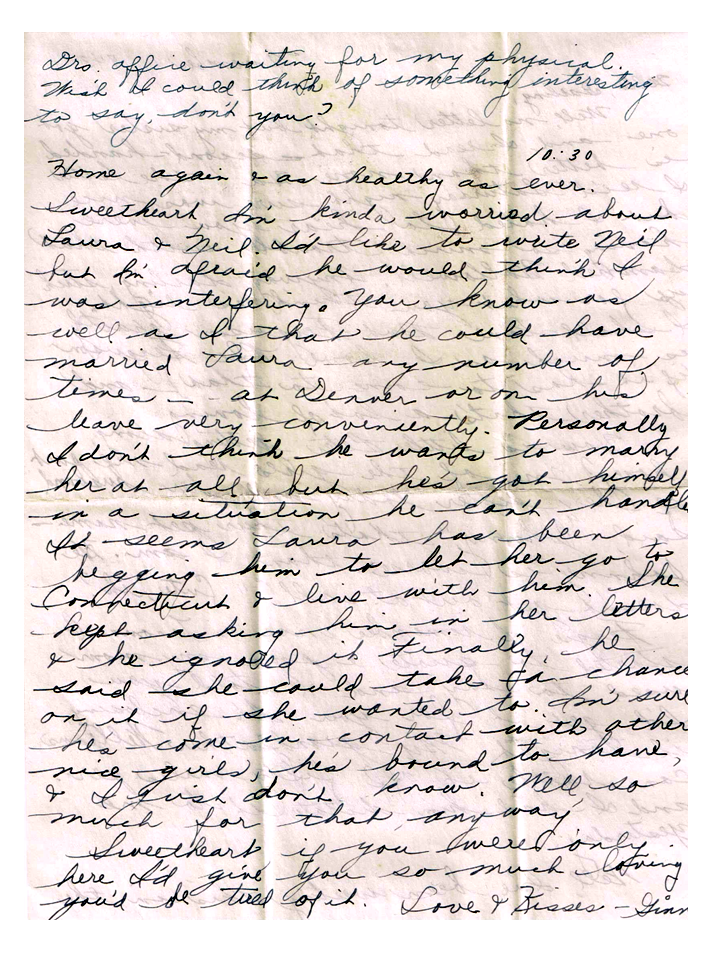 Drs. office waiting for my physical.
Wish I could think of something interesting
to say, don't you?
10:30
Home again & as healthy as ever.
Sweetheart I'm kinda worried about
Laura & Neil. I'd like to write Neil
but I'm afraid he would think I
was interfering. You know as
well as I that he could have
married Laura any number of
times — at Denver or on his
leave very conveniently. Personally
I don't think he wants to marry
her at all but he's got himself
in a situation he can't handle
It seems Laura has been
begging him to let her go to
Connecticut & live with him. She
kept asking him in her letters
& he ignored it Finally, he
said she could take a chance
on it if she wanted to. I'm sure
he's come in contact with other
nice girls, he's bound to have,
& I just don't know. Well so
much for that, anyway,
Sweetheart if you were only
here I'd give you so much loving
you'd be tired of it. Love & Kisses — Ginn